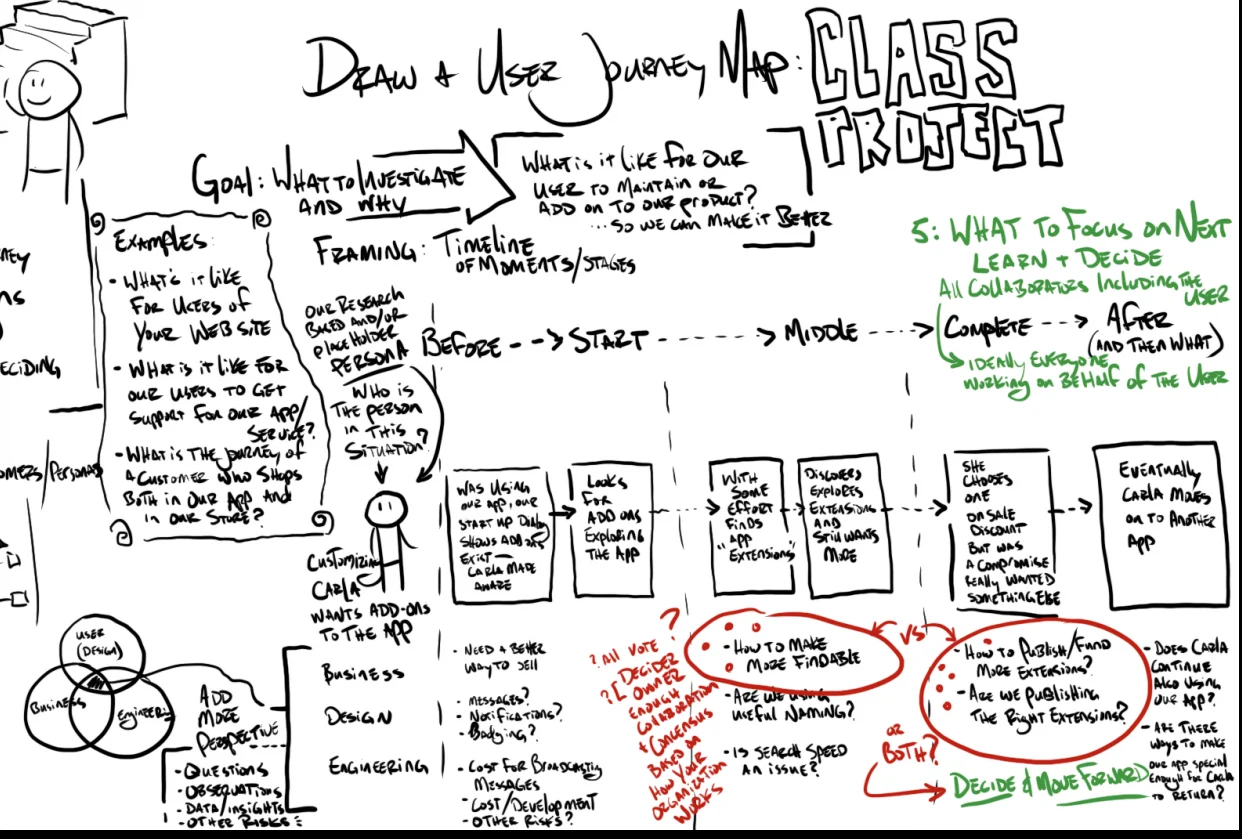 DRAW A USER JOURNEY MAP: CLASS
PROJECT
GOAL: WHAT TO INVESTIGATE
AND WHY
WHAT IS IT LIKE FOR OUR
USER TO MAINTAIN OR
ADD ON TO OUR PRODUCT?
...SO WE CAN MAKE IT BETTER
EXAMPLES:
• WHAT'S IT LIKE
FOR USERS OF
YOUR WEB SITE
• WHAT IS IT LIKE FOR
OUR USERS TO GET
SUPPORT FOR OUR APP/
SERVICE?
• WHAT IS THE JOURNEY OF
A CUSTOMER WHO SHOPS
BOTH IN OUR APP AND
IN OUR STORE?
FRAMING: TIMELINE
OF MOMENTS/STAGES
5: WHAT TO FOCUS ON NEXT
LEARN + DECIDE
ALL COLLABORATORS INCLUDING THE
USER
OUR RESEARCH
BASED AND/OR
PLACEHOLDER
PERSONA
BEFORE --> START -----> MIDDLE ----> COMPLETE ---> AFTER
(AND THEN WHAT)
IDEALLY EVERYONE
WORKING ON BEHALF OF THE USER
WHO IS
THE PERSON
IN THIS
SITUATION?
ECIDING
OMERS/PERSONAS
CUSTOMIZING
CARLA
WANTS ADD-ONS
TO THE APP
WAS USING
OUR APP, OUR
START UP DIALOG
SHOWS ADD ONS
EXIST —
CARLA MADE
AWARE
LOOKS
FOR
ADD ONS
EXPLORING
THE APP
WITH
SOME
EFFORT
FINDS
APP
"EXTENSIONS"
DISCOVERS
EXPLORES
EXTENSIONS
AND
STILL WANTS
MORE
SHE
CHOOSES
ONE
ON SALE
DISCOUNT
BUT WAS
A COMPROMISE
REALLY WANTED
SOMETHING ELSE
EVENTUALLY
CARLA MOVES
ON TO ANOTHER
APP
USER
(DESIGN)
BUSINESS
ENGINEERING
ADD
MORE
PERSPECTIVE
• QUESTIONS
• OBSERVATIONS
• DATA/INSIGHTS
• OTHER RISKS
BUSINESS
DESIGN
ENGINEERING
• NEED A BETTER
WAY TO SELL
• MESSAGES?
• NOTIFICATIONS?
• BADGING?
• COST FOR BROADCASTING
MESSAGES
• COST/DEVELOPMENT
• OTHER RISKS?
?
? ALL VOTE
? [DECIDER
OWNER
ENOUGH
COLLABORATION
+ CONSENSUS
BASED ON
HOW YOUR
ORGANIZATION
WORKS
• HOW TO MAKE
MORE FINDABLE
• ARE WE USING
USEFUL NAMING?
• IS SEARCH SPEED
AN ISSUE?
VS
• HOW TO PUBLISH/FUND
MORE EXTENSIONS?
• ARE WE PUBLISHING
THE RIGHT EXTENSIONS?
OR
BOTH?
DECIDE & MOVE FORWARD
• DOES CARLA
CONTINUE
ALSO USING
OUR APP?
• ARE THERE
WAYS TO MAKE
OUR APP SPECIAL
ENOUGH FOR CARLA
TO RETURN?